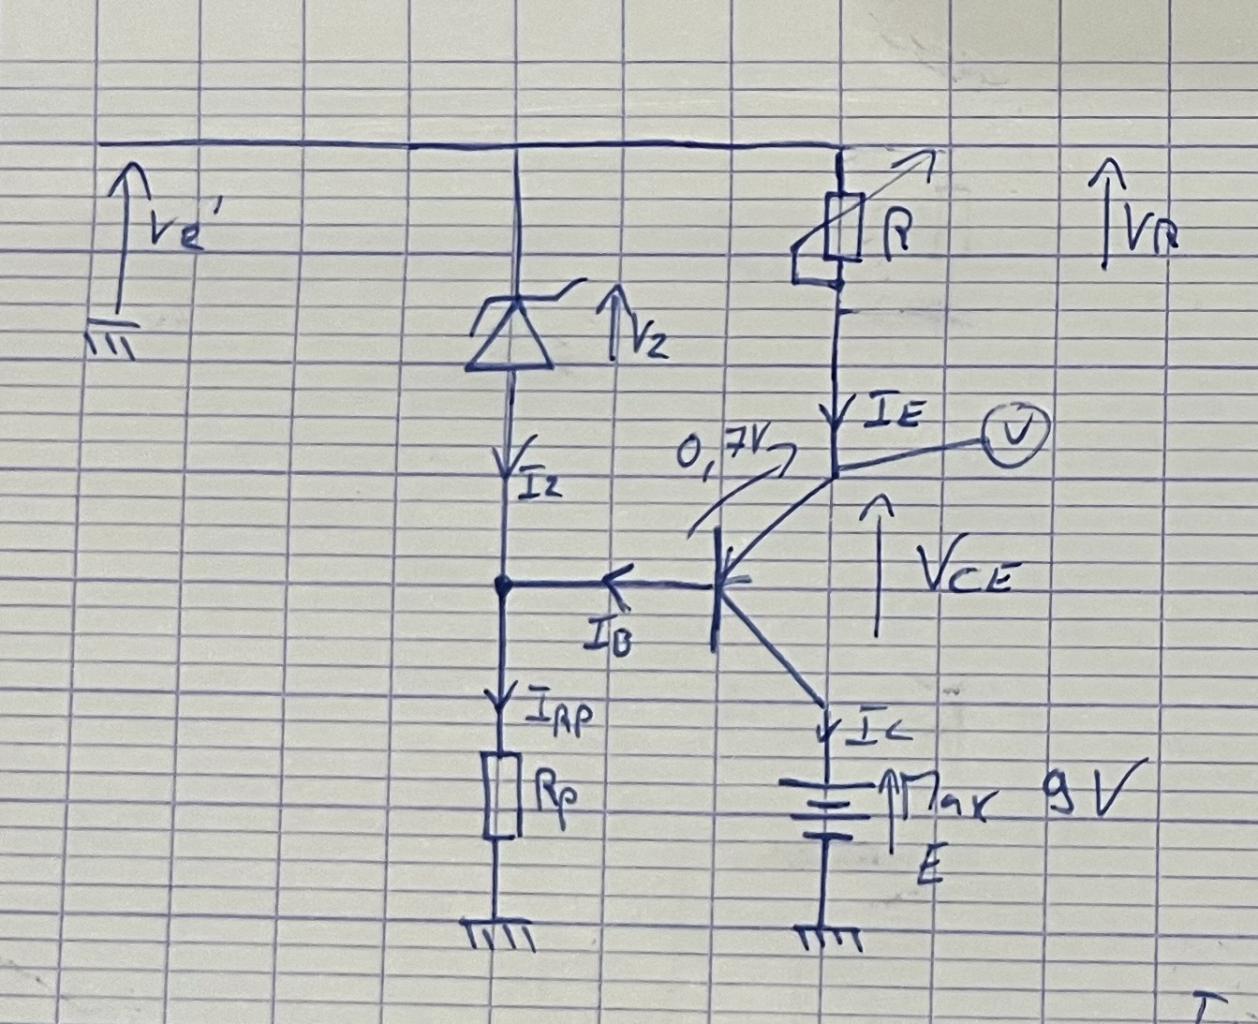 Ve'
R
VR
VZ
IE
V
0,7V
IZ
VCE
IB
IRP
IC
RP
Max 9V
E